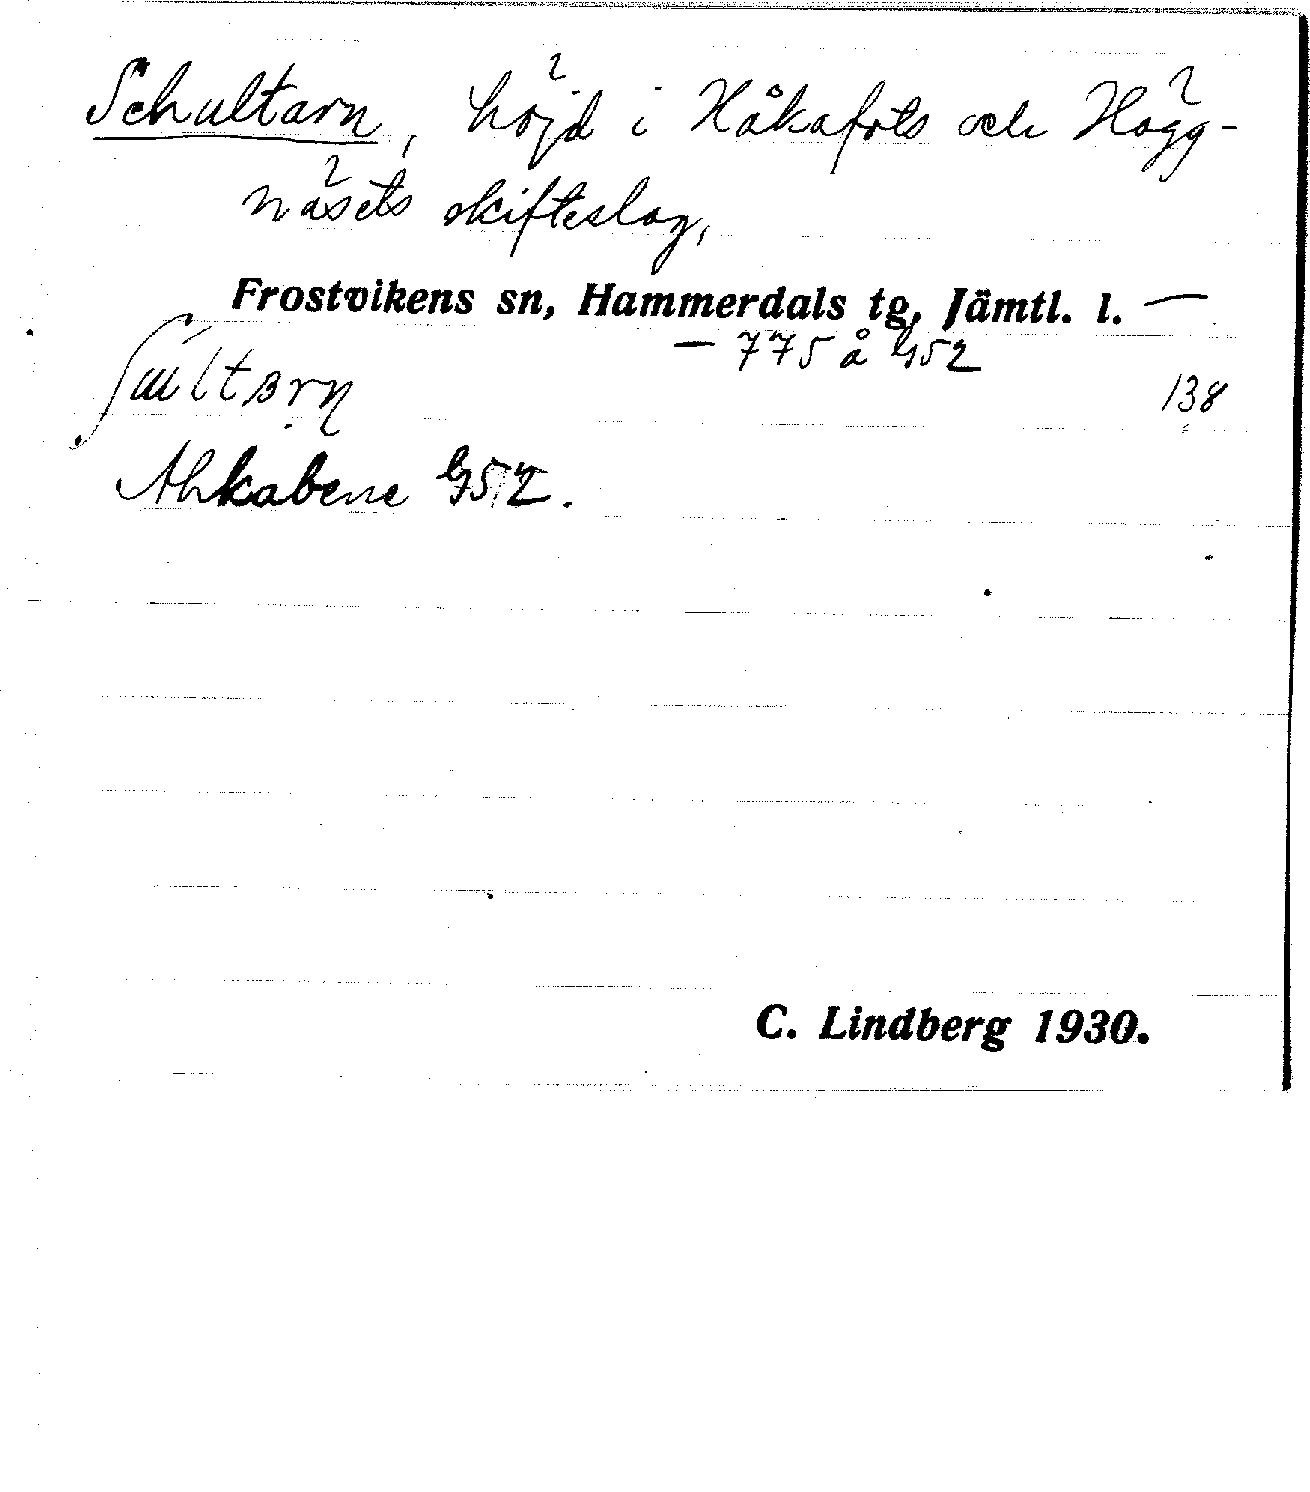 Schultarn, höjd i Håkafots och Högg-
näsets skifteslag,
Frostvikens sn, Hammerdals tg, Jämtl. l. —
— 775 å G52
138
Ahkabene G52.
C. Lindberg 1930.